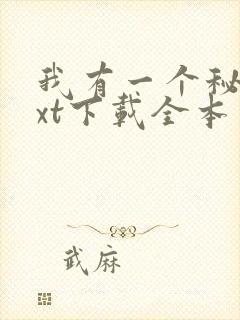 我有一个秘
xt下载全本
武麻